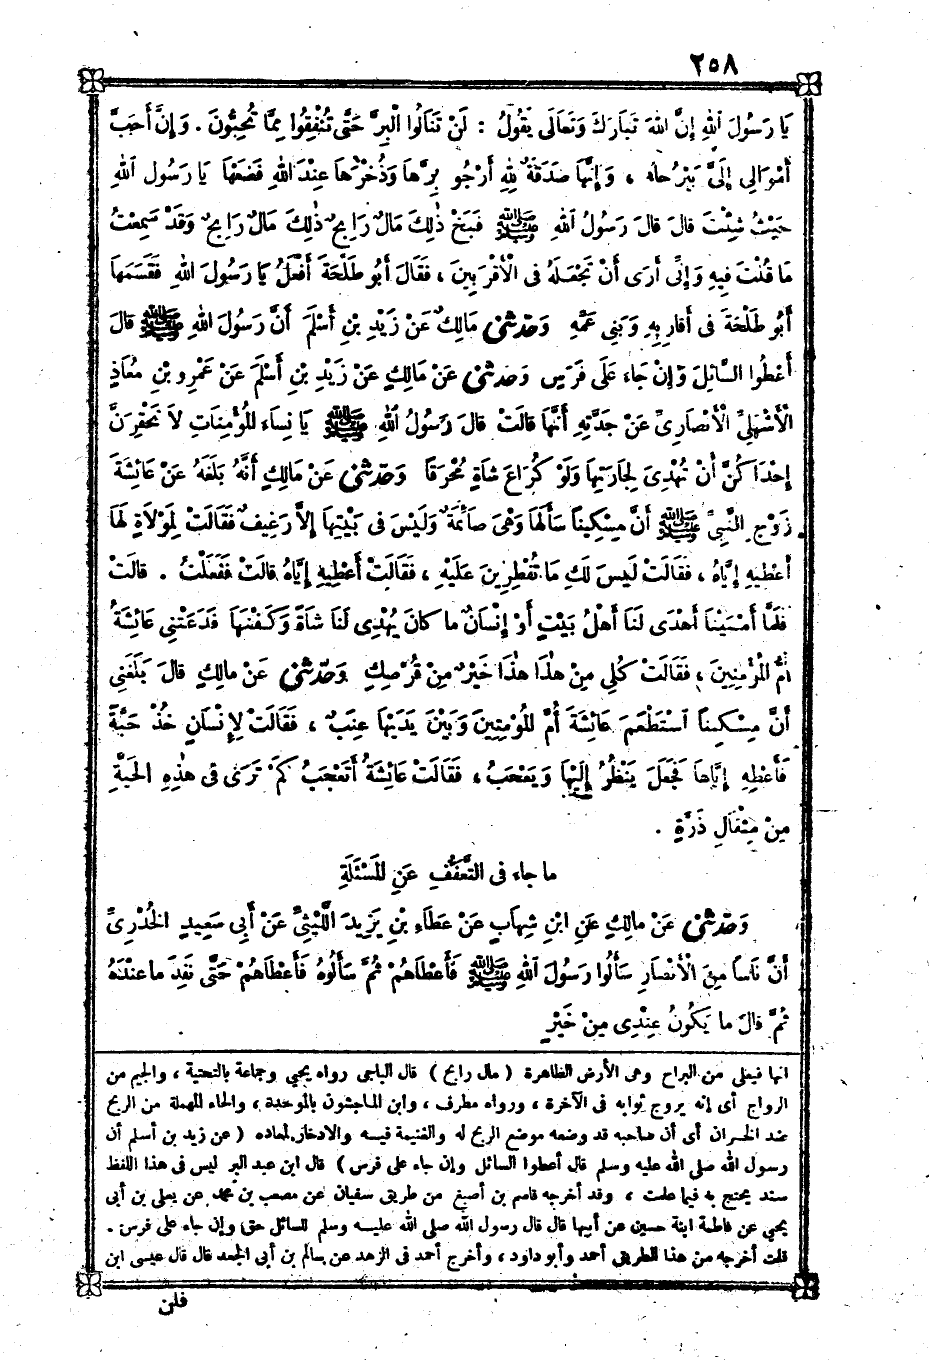 ٢٥٨
يَا رَسُولَ اللهِ إِنَّ اللهَ تَبَارَكَ وَتَعَالَى يَقُولُ : لَنْ تَنَالُوا الْبِرَّ حَتَّى تُنْفِقُوا مِمَّا تُحِبُّونَ . وَإِنَّ أَحَبَّ
أَمْوَالِى إِلَىَّ بَيْرُحاءَ ، وَإِنَّهَا صَدَقَةٌ لِلهِ أَرْجُو بِرَّهَا وَذُخْرَهَا عِنْدَ اللهِ فَضَعْهَا يَا رَسُولَ اللهِ
حَيْثُ شِئْتَ قالَ قالَ رَسُولُ اللهِ ﷺ فَبَخْ ذٰلِكَ مَالٌ رَابِحٌ ذٰلِكَ مَالٌ رَابِحٌ وَقَدْ سَمِعْتُ
مَا قُلْتَ فِيهِ وَإِنِّى أَرَى أَنْ تَجْعَلَهُ فى الْأَقْرَبِينَ ، فَقَالَ أَبُو طَلْحَةَ أَفْعَلُ يَا رَسُولَ اللهِ فَقَسَمَهَا
أَبُو طَلْحَةَ فى أَقَارِبِهِ وَبَنِى عَمِّهِ وَحَدَّثَنِى مَالِكٌ عَنْ زَيْدِ بْنِ أَسْلَمَ أَنَّ رَسُولَ اللهِ ﷺ قالَ
أَعْطُوا السَّائِلَ وَإِنْ جَاءَ عَلَى فَرَسٍ وَحَدَّثَنِى عَنْ مَالِكٍ عَنْ زَيْدِ بْنِ أَسْلَمَ عَنْ عَمْرِو بْنِ مُعَاذٍ
الْأَشْهَلِىِّ الْأَنْصَارِىِّ عَنْ جَدَّتِهِ أَنَّهَا قالَتْ قالَ رَسُولُ اللهِ ﷺ يَا نِسَاءَ الْمُؤْمِنَاتِ لاَ تَحْقِرَنَّ
إِحْدَاكُنَّ أَنْ تُهْدِىَ لِجَارَتِهَا وَلَوْ كُرَاعَ شَاةٍ مُحْرَقًا وَحَدَّثَنِى عَنْ مَالِكٍ أَنَّهُ بَلَغَهُ عَنْ عَائِشَةَ
زَوْجِ النَّبِىِّ ﷺ أَنَّ مِسْكِيناً سَأَلَهَا وَهْىَ صَائِمَةٌ وَلَيْسَ فى بَيْتِهَا إِلاَّ رَغِيفٌ فَقَالَتْ لِمَوْلاَةٍ لَهَا
أَعْطِيهِ إِيَّاهُ ، فَقَالَتْ لَيْسَ لَكِ مَا تُفْطِرِينَ عَلَيْهِ ، فَقَالَتْ أَعْطِيهِ إِيَّاهُ قالَتْ فَفَعَلْتُ . قالَتْ
فَلَمَّا أَمْسَيْنَا أَهْدَى لَنَا أَهْلُ بَيْتٍ أَوْ إِنْسَانٌ مَا كانَ يُهْدِى لَنَا شَاةً وَكَفَنَهَا فَدَعَتْنِى عَائِشَةُ
أُمُّ الْمُؤْمِنِينَ ، فَقَالَتْ كُلِى مِنْ هٰذَا هٰذَا خَيْرٌ مِنْ قُرْصِكِ وَحَدَّثَنِى عَنْ مَالِكٍ قالَ بَلَغَنِى
أَنَّ مِسْكِيناً اسْتَطْعَمَ عَائِشَةَ أُمَّ الْمُؤْمِنِينَ وَبَيْنَ يَدَيْهَا عِنَبٌ ، فَقَالَتْ لِإِنْسَانٍ خُذْ حَبَّةً
فَأَعْطِهِ إِيَّاهَا فَجَعَلَ يَنْظُرُ إِلَيْهَا وَيَعْجَبُ ، فَقَالَتْ عَائِشَةُ أَتَعْجَبُ كَمْ تَرَى فى هٰذِهِ الْحَبَّةِ
مِنْ مِثْقَالِ ذَرَّةٍ .
ما جاء فى التَّعَفُّفِ عَنِ الْمَسْئَلَةِ
وَحَدَّثَنِى عَنْ مالِكٍ عَنِ ابْنِ شِهَابٍ عَنْ عَطَاءِ بْنِ يَزِيدَ اللَّيْثِىِّ عَنْ أَبِى سَعِيدٍ الْخُدْرِىِّ
أَنَّ نَاساً مِنَ الْأَنْصَارِ سَأَلُوا رَسُولَ اللهِ ﷺ فَأَعْطَاهُمْ ثُمَّ سَأَلُوهُ فَأَعْطَاهُمْ حَتَّى نَفِدَ ما عِنْدَهُ
ثُمَّ قالَ ما يَكُونُ عِنْدِى مِنْ خَيْرٍ
انها فيعلى من البراح وهى الأرض الظاهرة ( مال رابح ) قال الباجى رواه يحيى وجماعة بالتحتية ، والجيم من
الرواج أى إنه يروج ثوابه فى الآخرة ، ورواه مطرف ، وابن الماجشون بالموحدة ، والحاء المهملة من الربح
ضد الخسران أى أن صاحبه قد وضعه موضع الربح له والغنيمة فيه والادخار لمعاده ( عن زيد بن أسلم أن
رسول الله صلى الله عليه وسلم قال أعطوا السائل وإن جاء على فرس ) قال ابن عبد البر ليس فى هذا اللفظ
سند يحتج به فيما علمت ، وقد أخرجه قاسم بن أصبغ من طريق سفيان عن مصعب بن محمد عن يعلى بن أبى
يحيى عن فاطمة ابنة حسين عن أبيها قال قال رسول الله صلى الله عليه وسلم للسائل حق وإن جاء على فرس .
قلت أخرجه من هذا الطريق أحمد وأبو داود ، وأخرج أحمد فى الزهد عن سالم بن أبى الجعد قال قال عيسى ابن
فلن